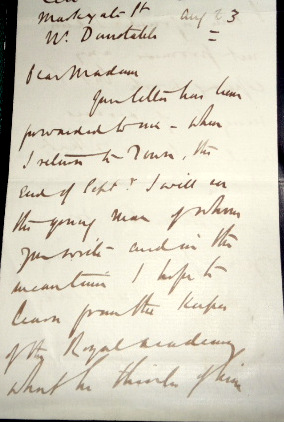 Markyate St Aug 23
Nr. Dunstable
Dear Madam
Your letter has been
forwarded to me - when
I return to Town, the
end of Sept. I will see
the young man of whom
you write - and in the
meantime I hope to
learn from the Keeper
of the Royal Academy
what he thinks of him